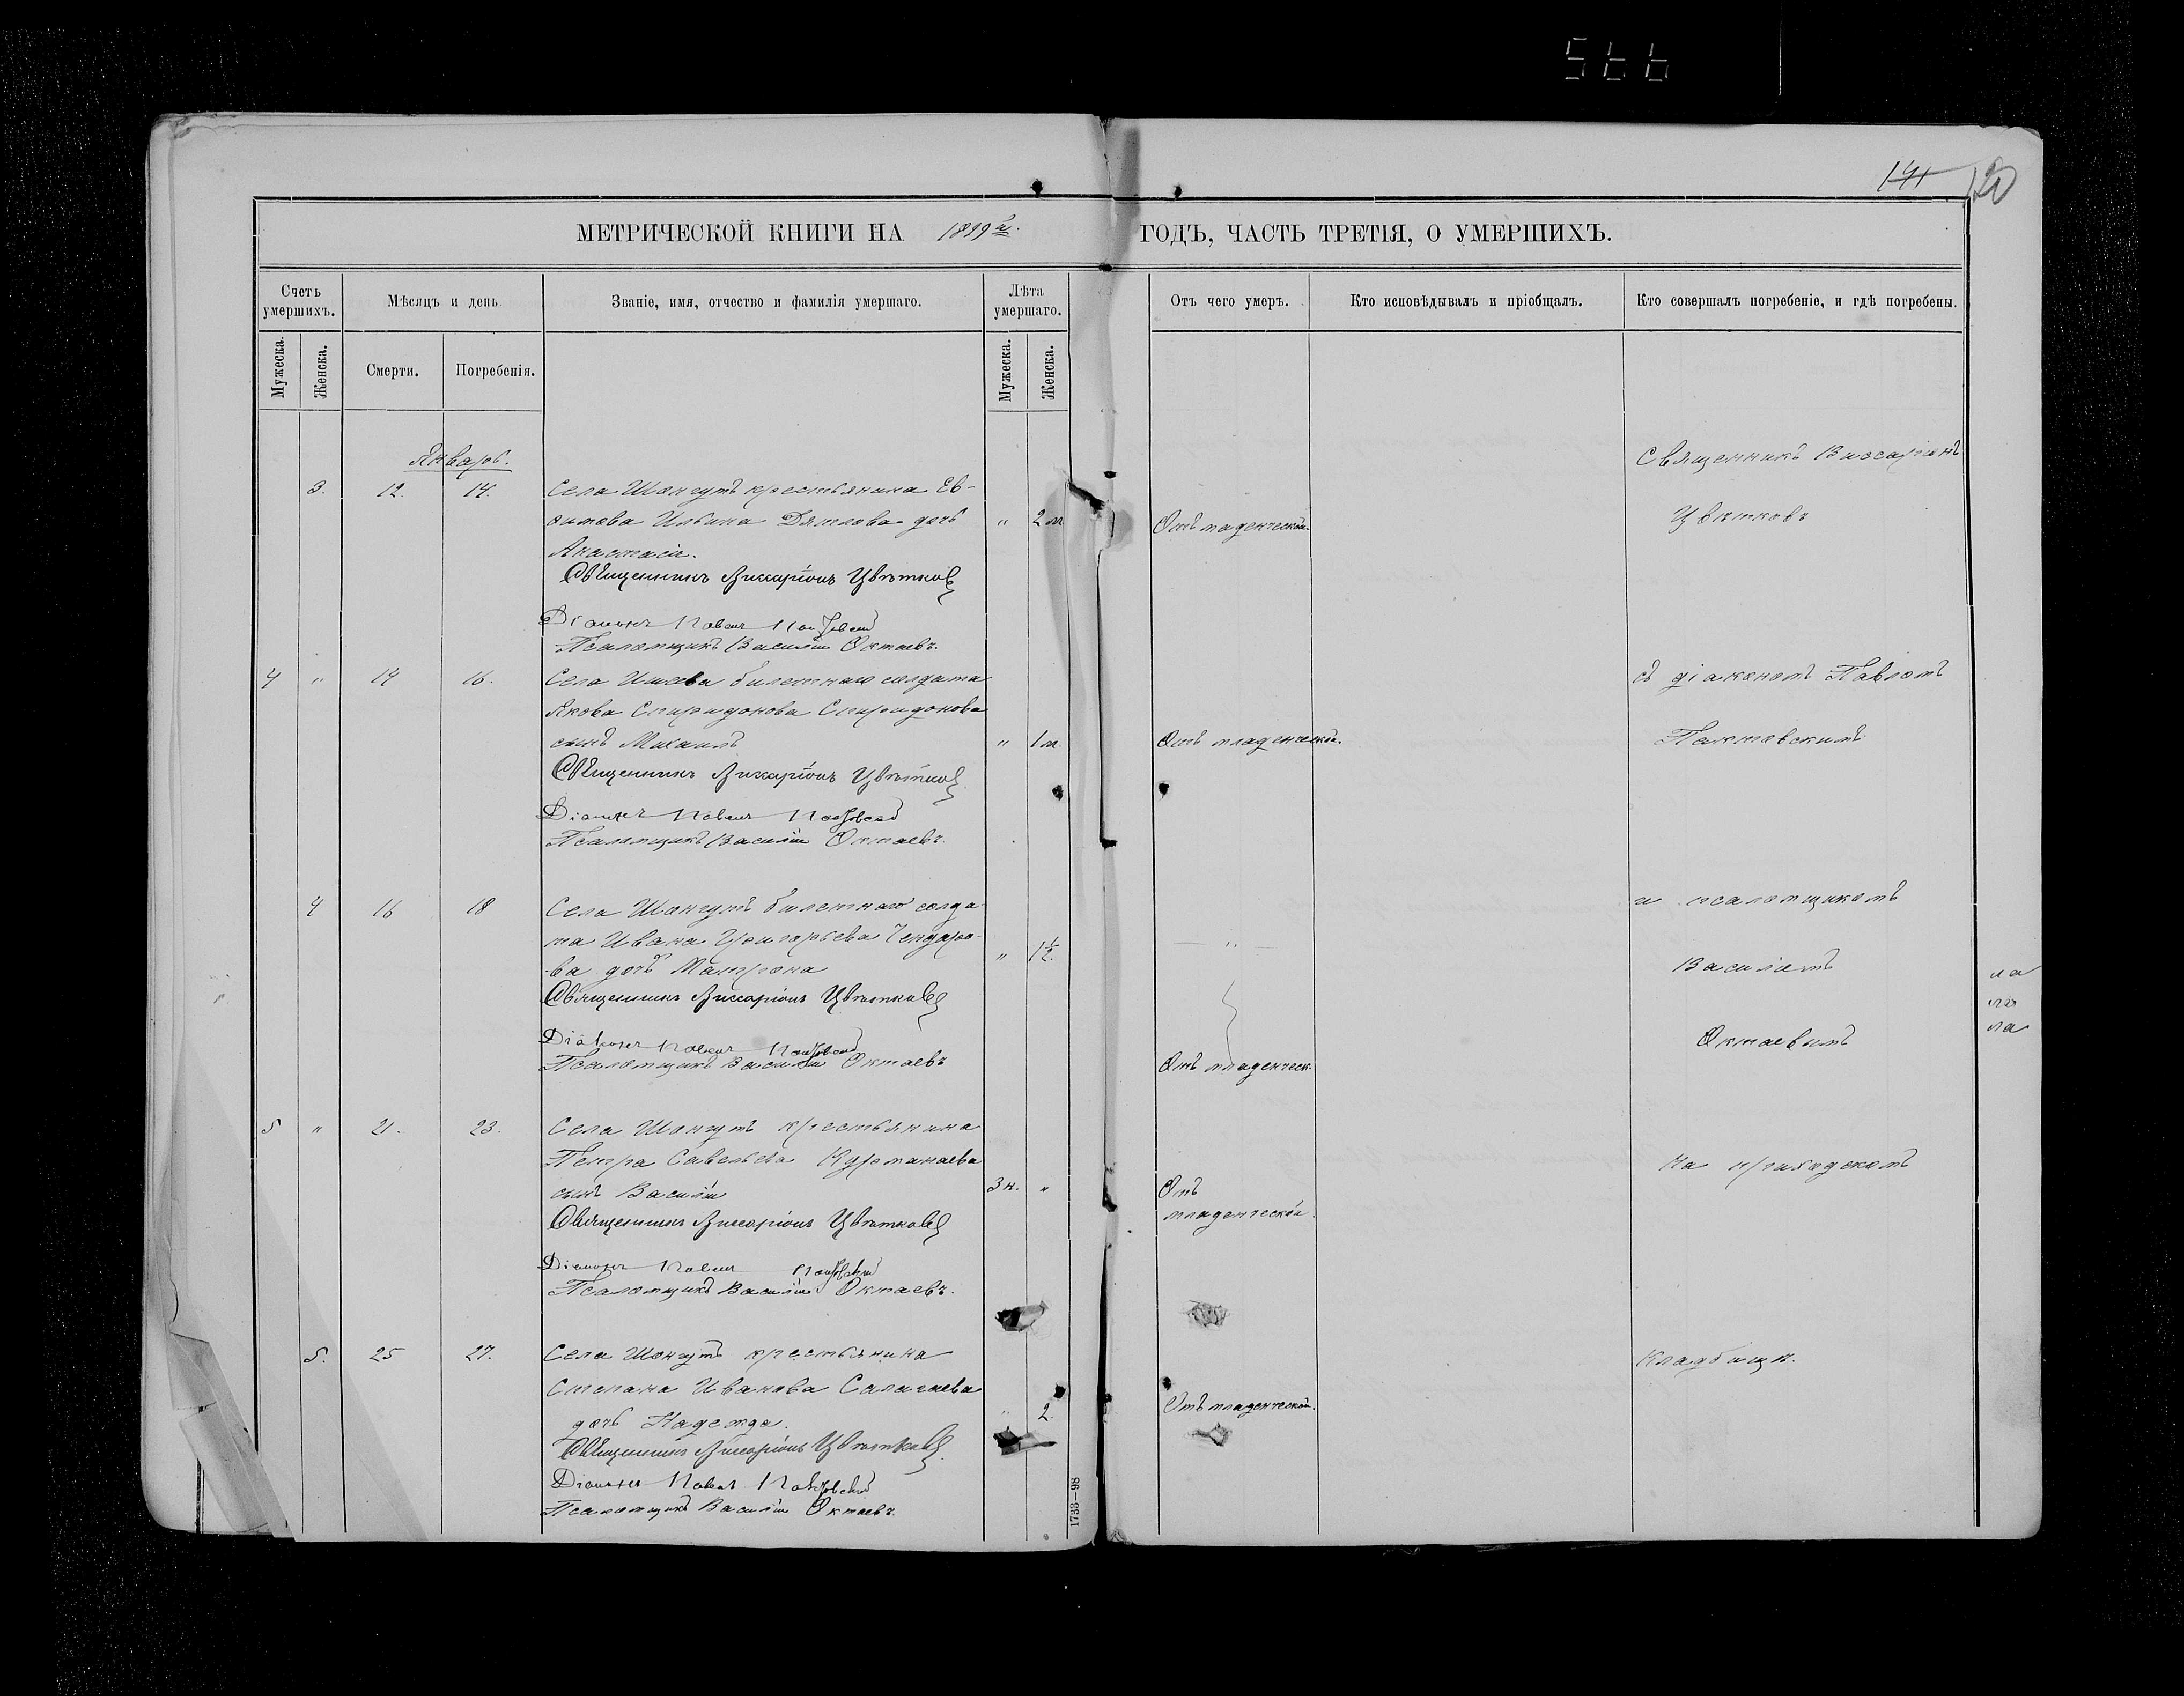 141 120
МЕТРИЧЕСКОЙ КНИГИ НА 1899й. ГОДЪ, ЧАСТЬ ТРЕТІЯ, О УМЕРШИХЪ.
Счетъ умершихъ.
Мѣсяцъ и день
Званіе, имя, отчество и фамилія умершаго.
Лѣта умершаго.
Отъ чего умеръ.
Кто исповѣдывалъ и пріобщалъ.
Кто совершалъ погребеніе, и гдѣ погребены.
Мужеска.
Женска.
Смерти.
Погребенія.
Мужеска.
Женска.
Январь.
3. 12. 14. Села Шонгутъ крестьянина Ев-
фимова Ильина Дятлова дочь " 2 м Отъ младенческой.
Анастасія.
Священникъ Виссаріонъ Цвѣтковъ
Діаконъ Павелъ
Псаломщикъ Василій Октаевъ.
4 " 14 16. Села Ишева билетнаго солдата
Якова Спиридонова Спиридонова
сынъ Михаилъ " 1 м. Отъ младенческой.
Священникъ Виссаріонъ Цвѣтковъ
Діаконъ Павелъ
Псаломщикъ Василій Октаевъ.
4 16 18 Села Шонгутъ билетнаго солда-
та Ивана Григорьева
ва дочь Матрона " 1½. "
Священникъ Виссаріонъ Цвѣтковъ
Діаконъ Павелъ
Псаломщикъ Василій Октаевъ
Отъ младенческ.
5 " 21. 23. Села Шонгутъ крестьянина
Петра Савельева Курманаева
сынъ Василій 3 н. " Отъ
младенческой.
Священникъ Виссаріонъ Цвѣтковъ
Діаконъ Павелъ
Псаломщикъ Василій Октаевъ.
5. 25 27. Села Шонгутъ крестьянина
Степана Иванова
дочь Надежда. " 2. Отъ младенческой.
Священникъ Виссаріонъ Цвѣтковъ
Діаконъ Павелъ
Псаломщикъ Василій Октаевъ.
Священникъ Виссаріонъ
Цвѣтковъ
съ діакономъ Павломъ
и псаломщикомъ
Василіемъ
Октаевымъ
на приходскомъ
кладбищѣ.
ла
ла
1733—98